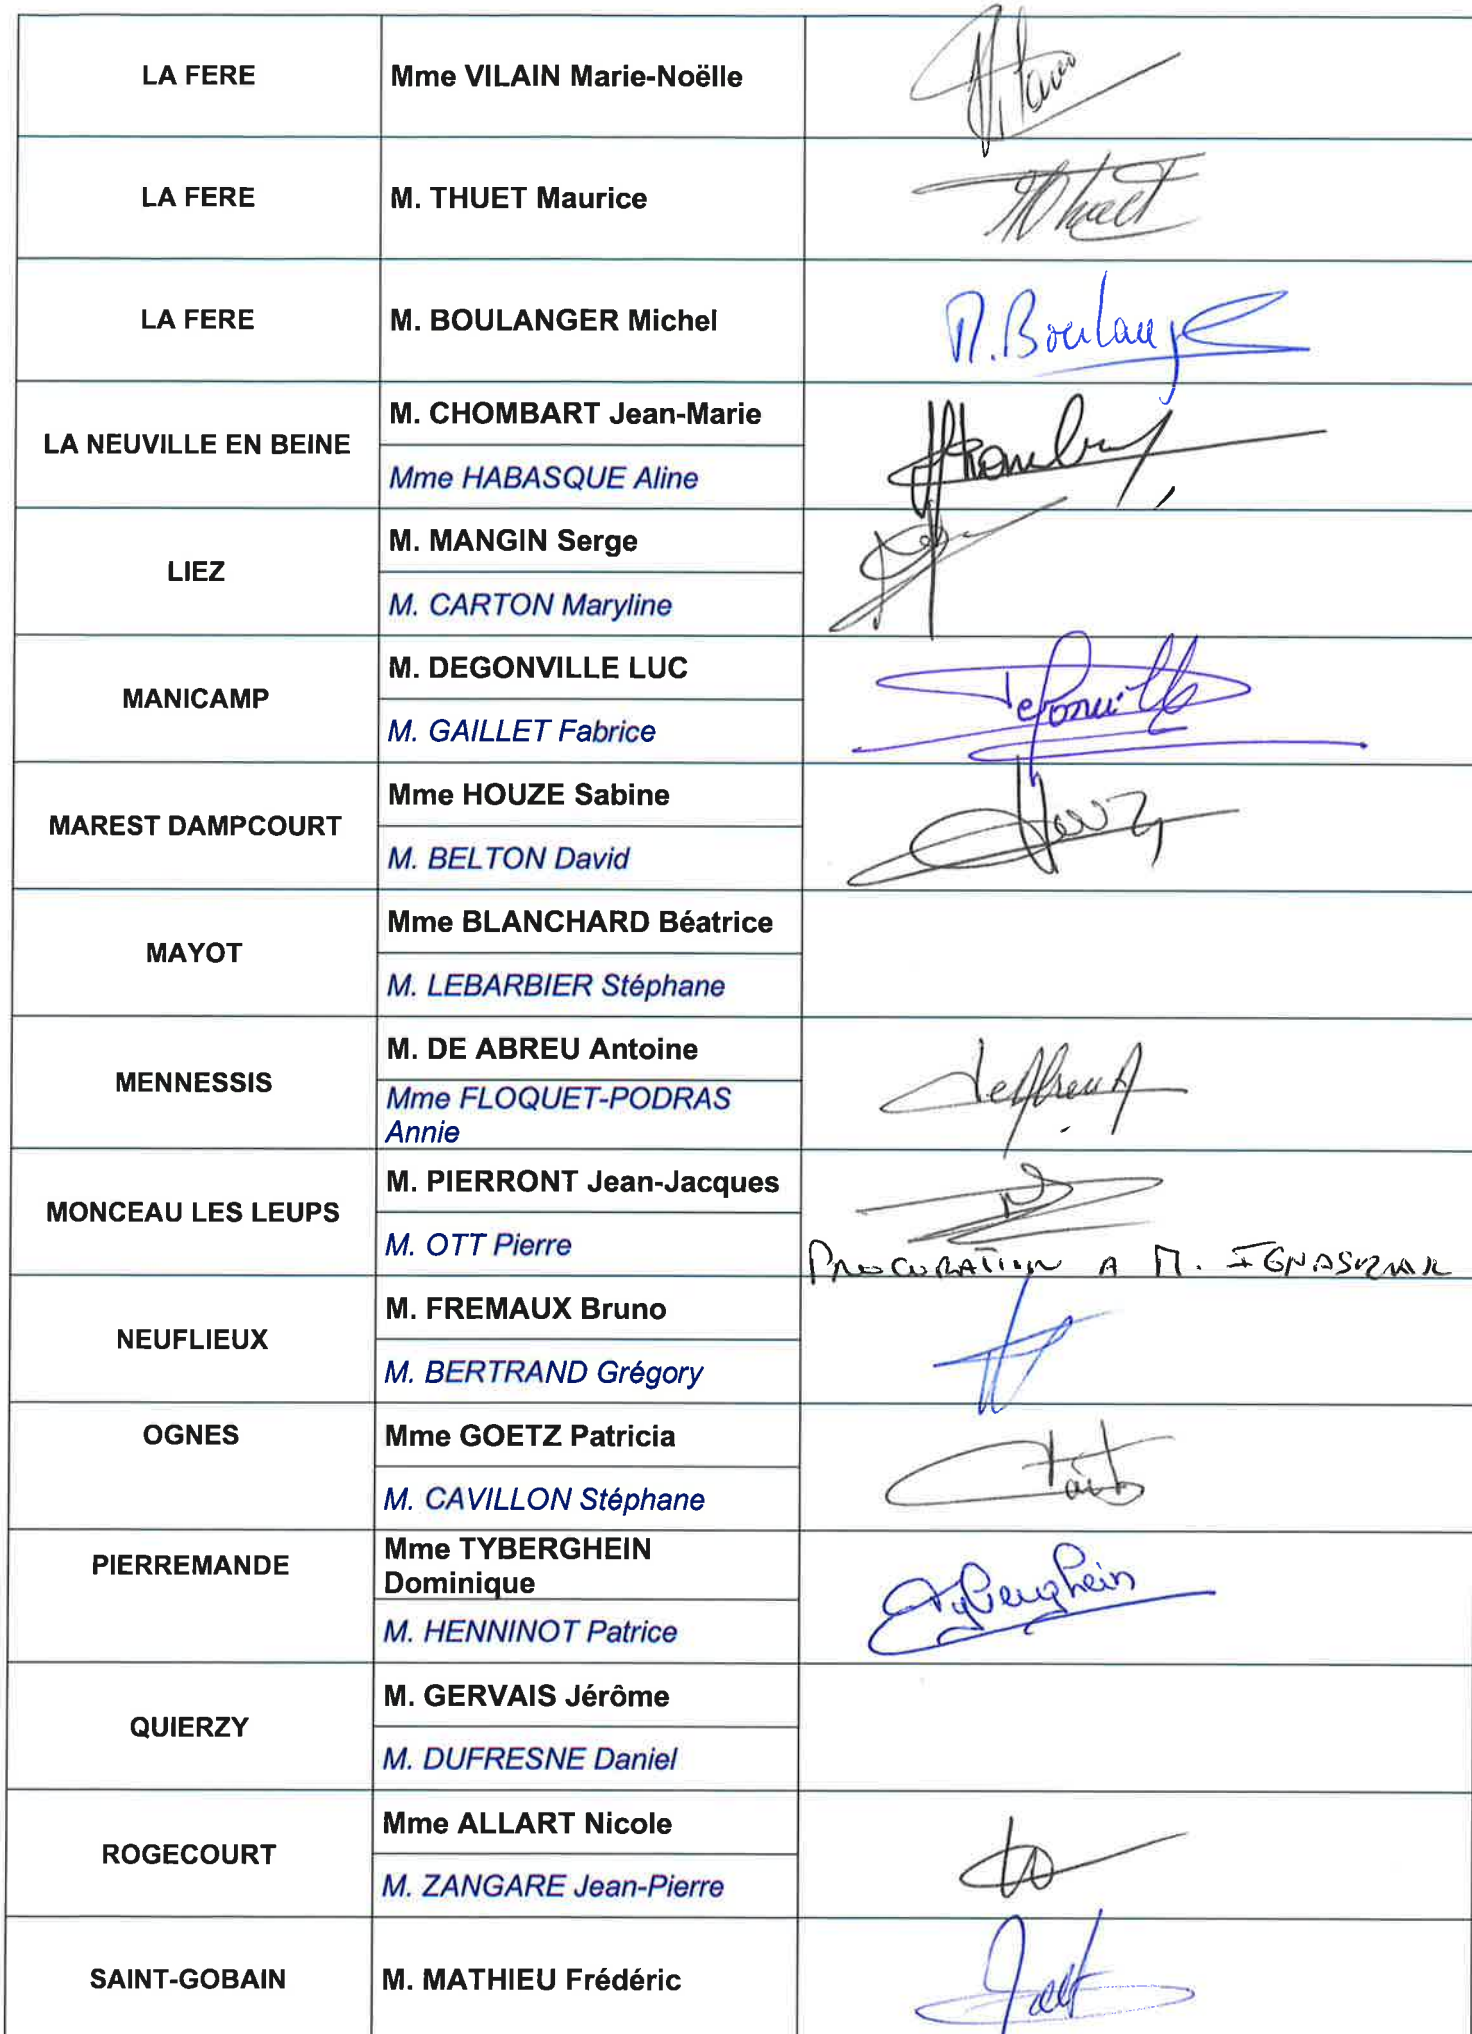 LA FERE
Mme VILAIN Marie-Noëlle
LA FERE
M. THUET Maurice
Thuet
LA FERE
M. BOULANGER Michel
M. Boulanger
LA NEUVILLE EN BEINE
M. CHOMBART Jean-Marie
Mme HABASQUE Aline
LIEZ
M. MANGIN Serge
M. CARTON Maryline
MANICAMP
M. DEGONVILLE LUC
M. GAILLET Fabrice
Degonville
MAREST DAMPCOURT
Mme HOUZE Sabine
M. BELTON David
MAYOT
Mme BLANCHARD Béatrice
M. LEBARBIER Stéphane
MENNESSIS
M. DE ABREU Antoine
Mme FLOQUET-PODRAS
Annie
MONCEAU LES LEUPS
M. PIERRONT Jean-Jacques
M. OTT Pierre
PROCURATION A M.
NEUFLIEUX
M. FREMAUX Bruno
M. BERTRAND Grégory
OGNES
Mme GOETZ Patricia
M. CAVILLON Stéphane
PIERREMANDE
Mme TYBERGHEIN
Dominique
M. HENNINOT Patrice
Tyberghein
QUIERZY
M. GERVAIS Jérôme
M. DUFRESNE Daniel
ROGECOURT
Mme ALLART Nicole
M. ZANGARE Jean-Pierre
SAINT-GOBAIN
M. MATHIEU Frédéric